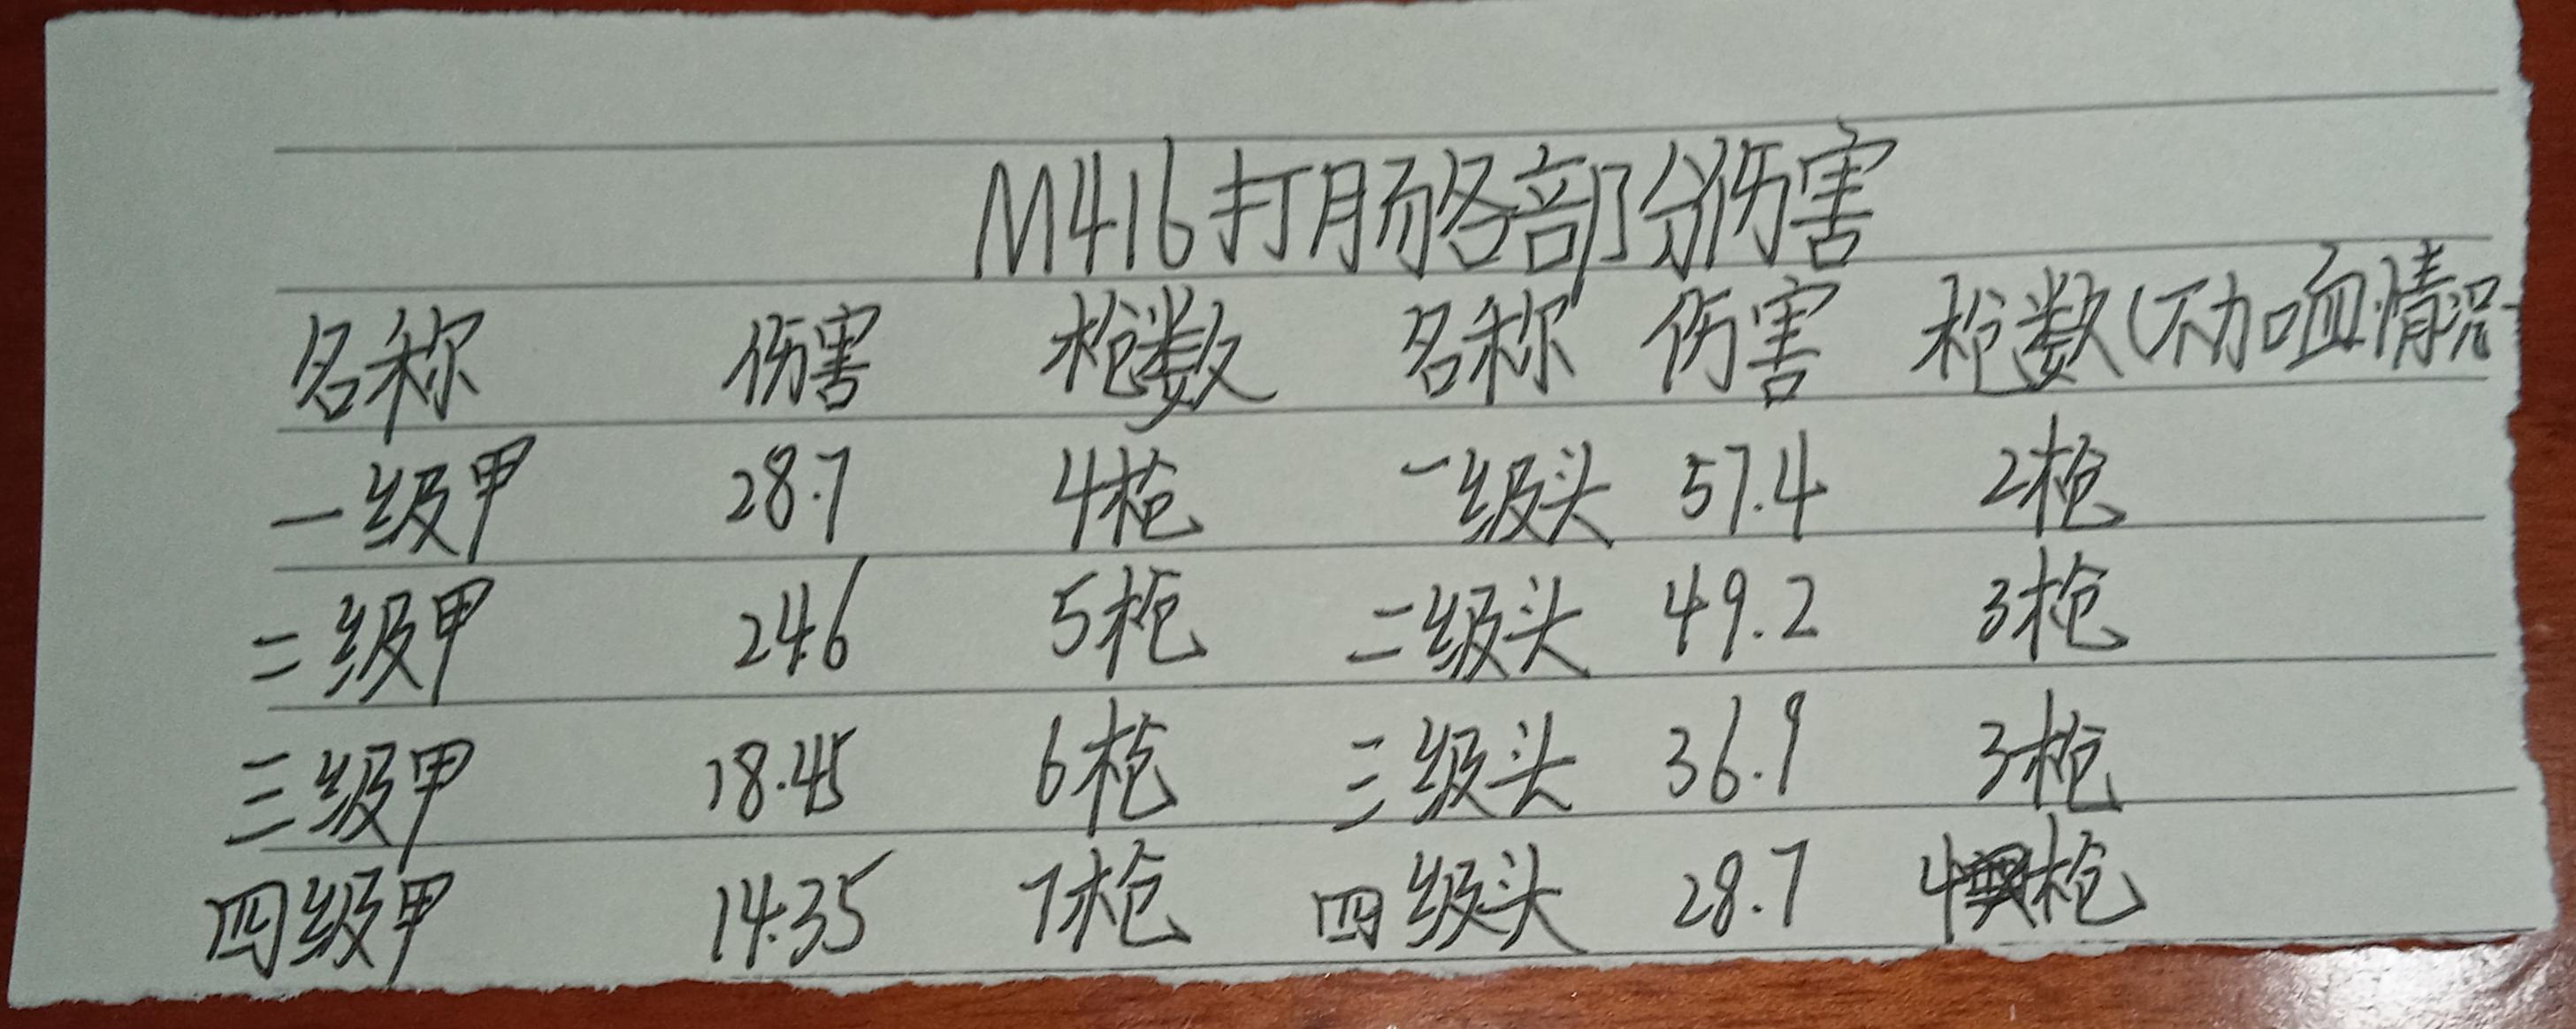 M416打肠各部分伤害
名称 伤害 枪数 名称 伤害 枪数(不加血情况
一级甲 28.7 4枪 一级头 57.4 2枪
二级甲 24.6 5枪 二级头 49.2 3枪
三级甲 18.45 6枪 三级头 36.9 3枪
四级甲 14.35 7枪 四级头 28.7 4枪